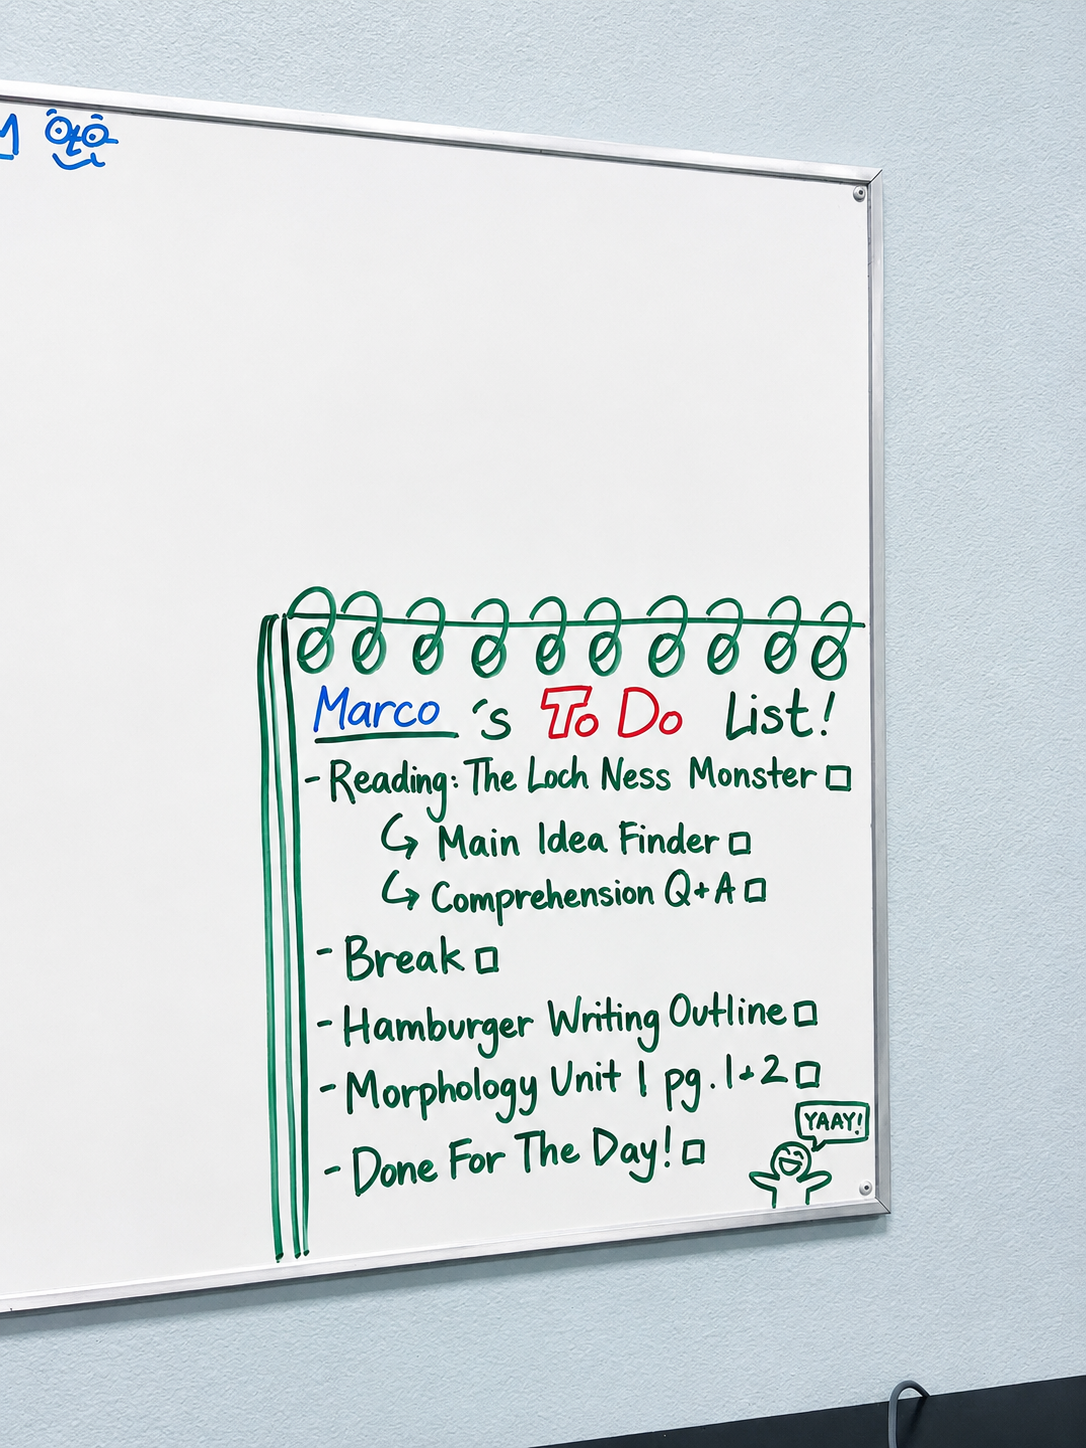 Marco's To Do List!
- Reading: The Loch Ness Monster □
↪ Main Idea Finder □
↪ Comprehension Q+A □
- Break □
- Hamburger Writing Outline □
- Morphology Unit 1 pg. 1+2 □
- Done For The Day! □
YAAY!